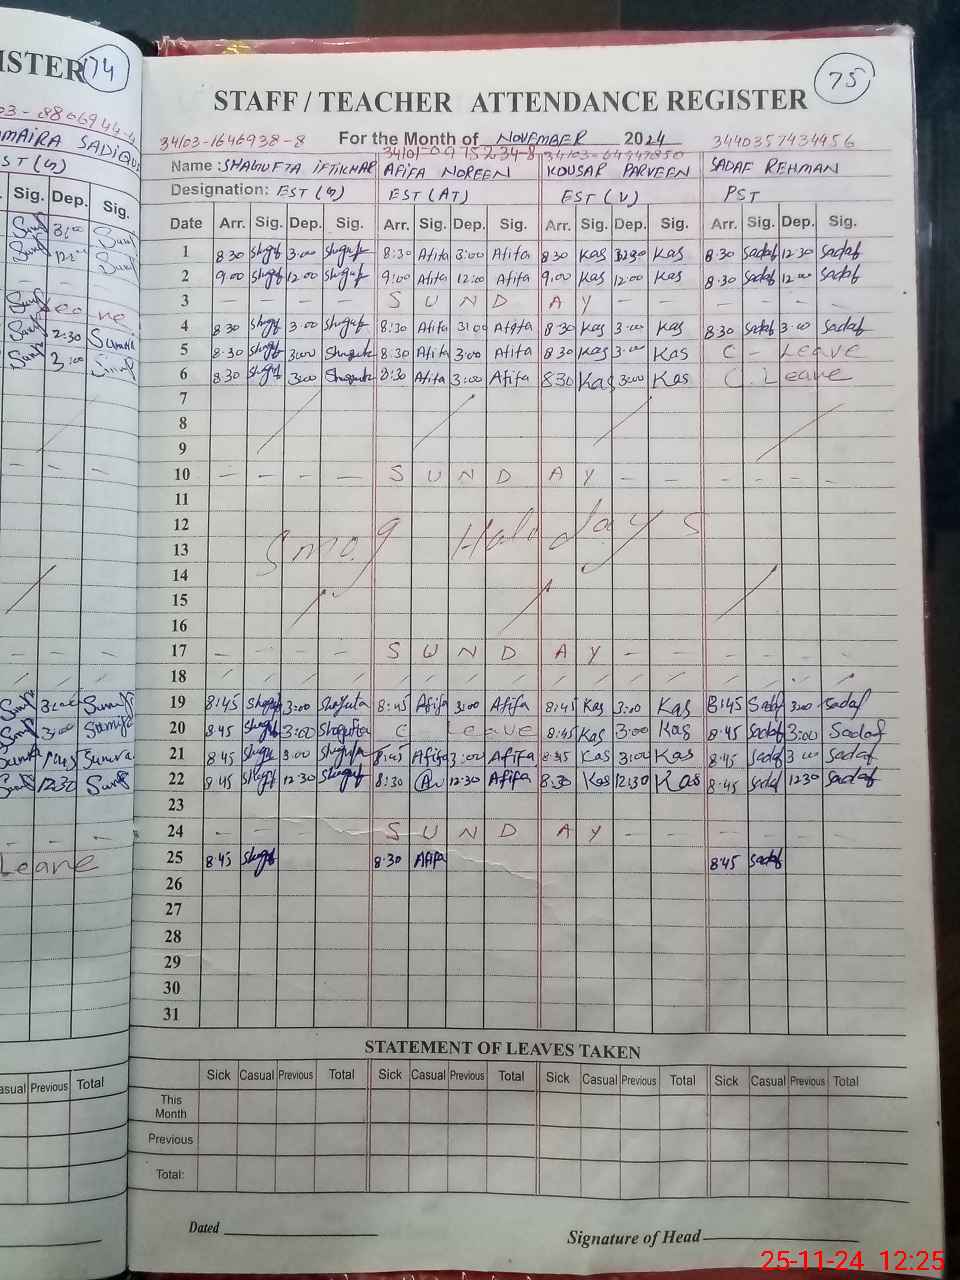 ISTER 74
STAFF / TEACHER ATTENDANCE REGISTER 75
03-8806944-4
34103-1646938-8 For the Month of NOVEMBER 2024 3440357434456
MAIRA SADIQU
Name : SHAGUFTA IFTIKHAR AFIFA NOREEN KOUSAR PARVEEN SADAF REHMAN
ST (S)
Designation: EST (S) EST (AT) EST (V) PST
Sig. Dep. Sig.
Date Arr. Sig. Dep. Sig. Arr. Sig. Dep. Sig. Arr. Sig. Dep. Sig. Arr. Sig. Dep. Sig.
1 8:30 3:00 8:30 Afifa 3:00 Afifa 8 30 Kas Kas 8:30 Sadaf 12 30 Sadaf
2 9:00 12:00 9:00 Afifa 12:00 Afifa 9:00 Kas 12:00 Kas 8:30 Sadaf 12:00 Sadaf
3 - - - - S U N D A Y - - - - - -
4 8:30 3:00 8:30 Afifa 3:00 Afifa 8 30 Kas 3:00 Kas 8:30 Sadaf 3:00 Sadaf
5 8:30 3:00 8:30 Afifa 3:00 Afifa 8 30 Kas 3:00 Kas C - Leave
6 8:30 3:00 8:30 Afifa 3:00 Afifa 8 30 Kas 3:00 Kas C. Leave
7
8
9
10 - - - - S U N D A Y - - - - - -
11
12 Smog Holidays
13
14
15
16
17 - - - - S U N D A Y - - - - - -
18
19 8:45 3:00 Shagufta 8:45 Afifa 3:00 Afifa 8:45 Kas 3:00 Kas 8:45 Sadaf 3:00 Sadaf
20 8:45 3:00 Shagufta C Leave 8:45 Kas 3:00 Kas 8:45 Sadaf 3:00 Sadaf
21 8:45 3:00 Shagufta 8:45 Afifa 3:00 Afifa 8:45 Kas 3:00 Kas 8:45 Sadaf 3:00 Sadaf
22 8:45 12:30 8:30 12:30 Afifa 8:30 Kas 12:30 Kas 8:45 Sadaf 12:30 Sadaf
23
24 - - - - S U N D A Y - - - - - -
Leave
25 8:45 8:30 Afifa 8:45 Sadaf
26
27
28
29
30
31
STATEMENT OF LEAVES TAKEN
asual Previous Total
Sick Casual Previous Total Sick Casual Previous Total Sick Casual Previous Total Sick Casual Previous Total
This
Month
Previous
Total:
Dated
Signature of Head
25-11-24 12:25